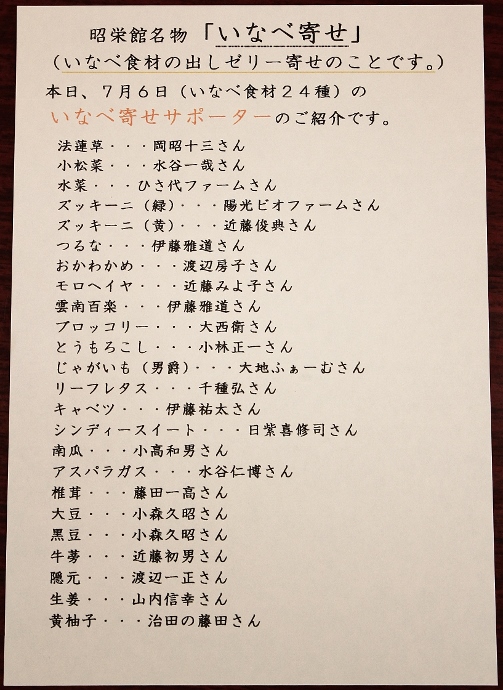 昭栄館名物「いなべ寄せ」
(いなべ食材の出しゼリー寄せのことです。)
本日、7月6日(いなべ食材24種)の
いなべ寄せサポーターのご紹介です。
法蓮草・・・岡昭十三さん
小松菜・・・水谷一哉さん
水菜・・・ひさ代ファームさん
ズッキーニ(緑)・・・陽光ビオファームさん
ズッキーニ(黄)・・・近藤俊典さん
つるな・・・伊藤雅道さん
おかわかめ・・・渡辺房子さん
モロヘイヤ・・・近藤みよ子さん
雲南百楽・・・伊藤雅道さん
ブロッコリー・・・大西衛さん
とうもろこし・・・小林正一さん
じゃがいも(男爵)・・・大地ふぁーむさん
リーフレタス・・・千種弘さん
キャベツ・・・伊藤祐太さん
シンディースイート・・・日紫喜修司さん
南瓜・・・小高和男さん
アスパラガス・・・水谷仁博さん
椎茸・・・藤田一高さん
大豆・・・小森久昭さん
黒豆・・・小森久昭さん
牛蒡・・・近藤初男さん
隠元・・・渡辺一正さん
生姜・・・山内信幸さん
黄柚子・・・治田の藤田さん